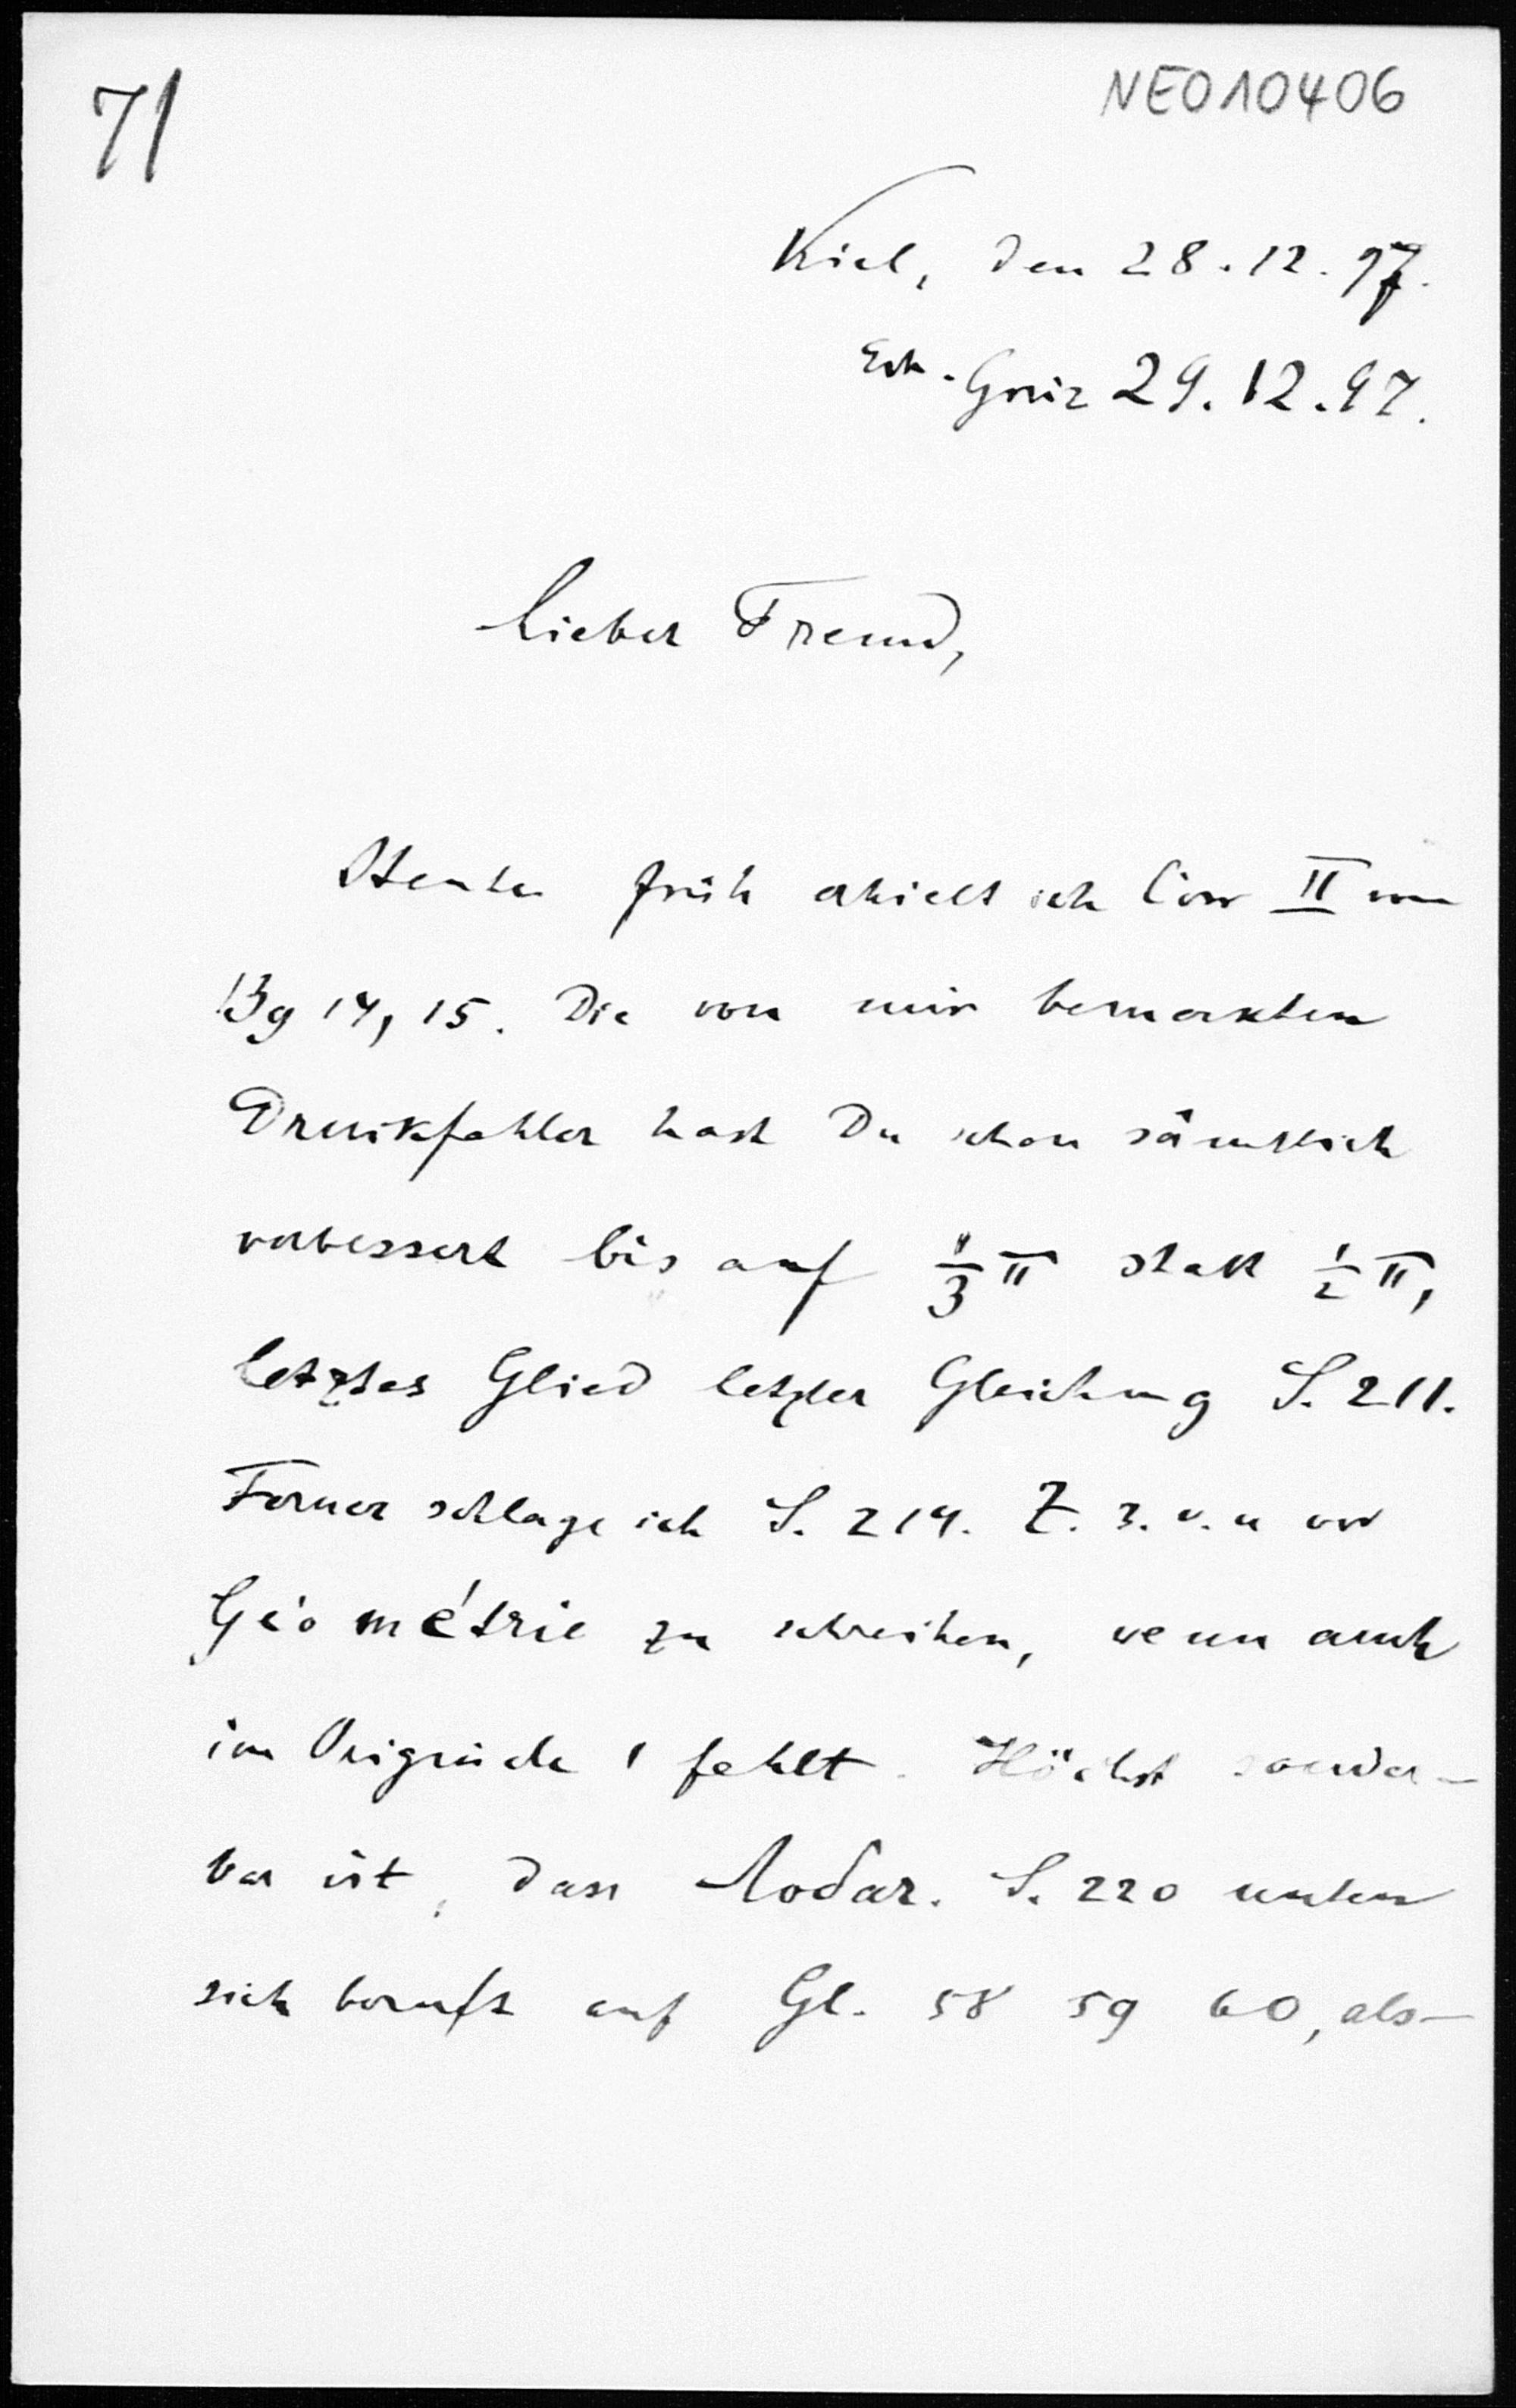 71
NE010406
Kiel, den 28.12.97.
Erh. Greiz 29.12.97.
Lieber Freund,
Heute früh erhielt ich Corr II von
Bg 14, 15. Die von mir bemerkten
Druckfehler hast Du schon sämtlich
verbessert bis auf 1/3 π statt 1/2 π,
letztes Glied letzter Gleichung S. 211.
Ferner schlage ich S. 214. Z. 3. v. u vor
Géométrie zu schreiben, wenn auch
im Originale ´ fehlt. Höchst sonder-
bar ist, dass S. 220 unten
sich beruft auf Gl. 58 59 60, als-